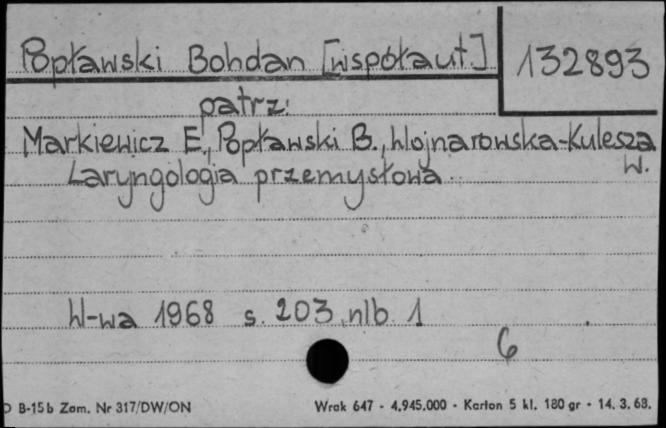 Popławski Bohdan [współaut] 132893
patrz:
Markiewicz E., Popławski B., Wojnarowska-Kulesza
W.
Laryngologia przemysłowa
W-wa 1968 s. 203, nlb 1
6
D B-15b Zam. Nr 317/DW/ON Wrak 647 - 4.945.000 - Karton 5 kl. 180 gr - 14. 3. 63.